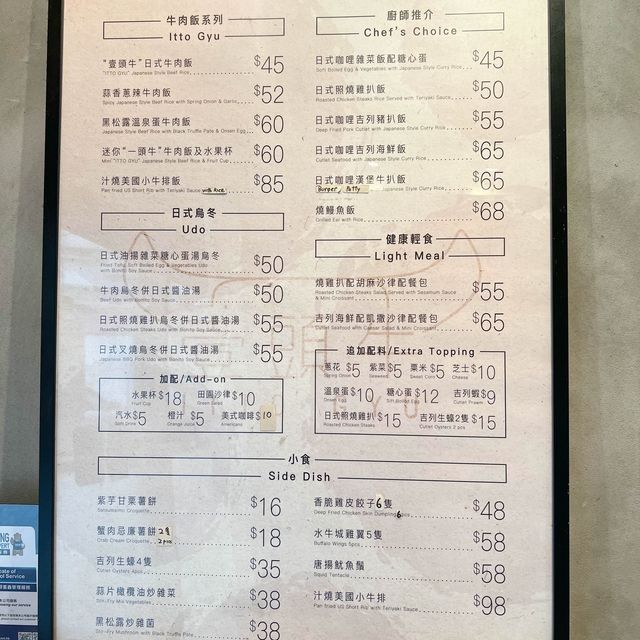 牛肉飯系列
Itto Gyu
"壹頭牛"日式牛肉飯 $45
"ITTO GYU" Japanese Style Beef Rice
蒜香蔥辣牛肉飯 $52
Spicy Japanese Style Beef Rice with Spring Onion & Garlic
黑松露溫泉蛋牛肉飯 $60
Japanese Style Beef Rice with Black Truffle Pate & Onsen Egg
迷你"一頭牛"牛肉飯及水果杯 $60
Mini "ITTO GYU" Japanese Style Beef Rice & Fruit Cup
汁燒美國小牛排飯 $85
Pan fried US Short Rib with Teriyaki Sauce with Rice
日式烏冬
Udo
日式油揚雜菜糖心蛋湯烏冬 $50
Fried Tofu, Soft Boiled Egg & Vegetables
with Bonito Soy Sauce
牛肉烏冬併日式醬油湯 $50
Beef Udo with Bonito Soy Sauce
日式照燒雞扒烏冬併日式醬油湯 $55
Roasted Chicken Steaks Udo with Bonito Soy Sauce
日式叉燒烏冬併日式醬油湯 $55
Japanese BBQ Pork Udo with Bonito Soy Sauce
加配/Add-on
水果杯$18 田園沙律$10
Fruit Cup Green Salad
汽水$5 橙汁 $5 美式咖啡$10
Soft Drink Orange Juice Americano
廚師推介
Chef's Choice
日式咖哩雜菜飯配糖心蛋 $45
Soft Boiled Egg & Vegetables with Japanese Style Curry Rice
日式照燒雞扒飯 $50
Roasted Chicken Steaks Rice Served with Teriyaki Sauce
日式咖哩吉列豬扒飯 $55
Deep Fried Pork Cutlet with Japanese Style Curry Rice
日式咖哩吉列海鮮飯 $65
Cutlet Seafood with Japanese Style Curry Rice
日式咖哩漢堡牛扒飯 $65
Burger Patty Japanese Style Curry Rice
燒鰻魚飯 $68
Grilled Eel with Rice
健康輕食
Light Meal
燒雞扒配胡麻沙律配餐包 $55
Roasted Chicken Steaks Salad Served with Sesamum Sauce
& Mini Croissant
吉列海鮮配凱撒沙律配餐包 $65
Cutlet Seafood with Caesar Salad & Mini Croissant
追加配料/Extra Topping
蔥花 $5 紫菜$5 粟米$5 芝士$10
Spring Onion Seaweed Sweet Corn Cheese
溫泉蛋$10 糖心蛋$12 吉列蝦$9
Onsen Egg Soft Boiled Egg Cutlet Prawn
日式照燒雞扒$15 吉列生蠔2隻$15
Roasted Chicken Steaks Cutlet Oysters 2 pcs
小食
Side Dish
紫芋甘栗薯餅 $16
Satsumaimo Croquette
蟹肉忌廉薯餅 2隻 $18
Crab Cream Croquette 2pcs
吉列生蠔4隻 $35
Cutlet Oysters 4pcs
蒜片橄欖油炒雜菜 $38
Stir-Fry Mixed Vegetables
黑松露炒雜菌 $38
Stir-Fry Mushroom with Black Truffle Pate
香脆雞皮餃子6隻 $48
Deep Fried Chicken Skin Dumpling 6pcs
水牛城雞翼5隻 $58
Buffalo Wings 5pcs
唐揚魷魚鬚 $58
Squid Tentacle
汁燒美國小牛排 $98
Pan fried US Short Rib with Teriyaki Sauce